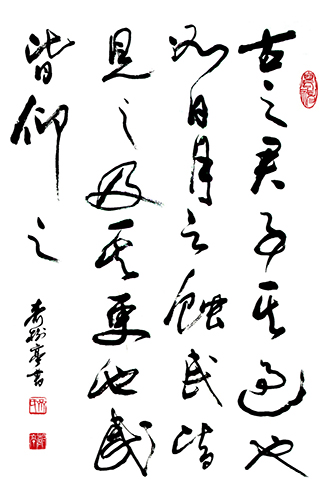 古之君子其過也
如日月之蝕民皆
見之及其更也民
皆仰之